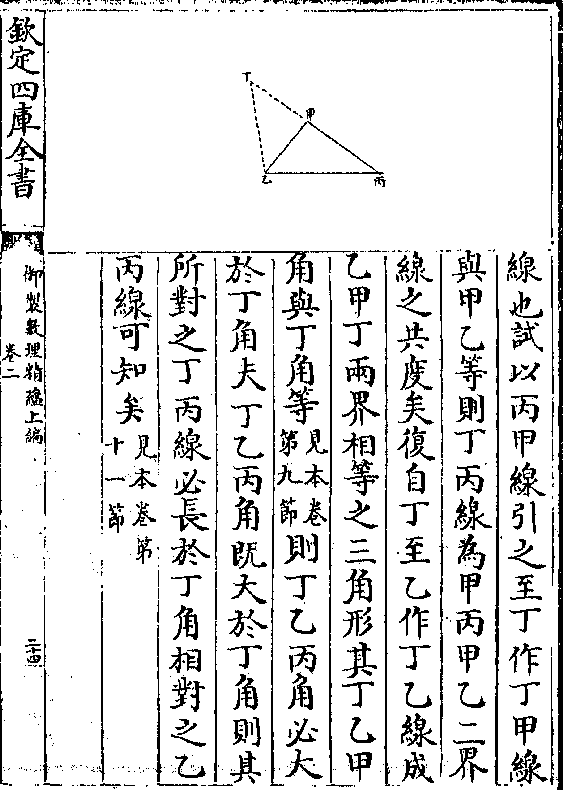 線也試以丙甲線引之至丁作丁甲線
與甲乙等則丁丙線為甲丙甲乙二界
線之共度矣復自丁至乙作丁乙線成
乙甲丁兩界相等之三角形其丁乙甲
角與丁角等見本卷第九節則丁乙丙角必大
於丁角夫丁乙丙角既大於丁角則其
所對之丁丙線必長於丁角相對之乙
丙線可知矣見本卷第十一節
丁
甲
乙
丙
欽定四庫全書
御製數理精蘊上編
卷二
二十四